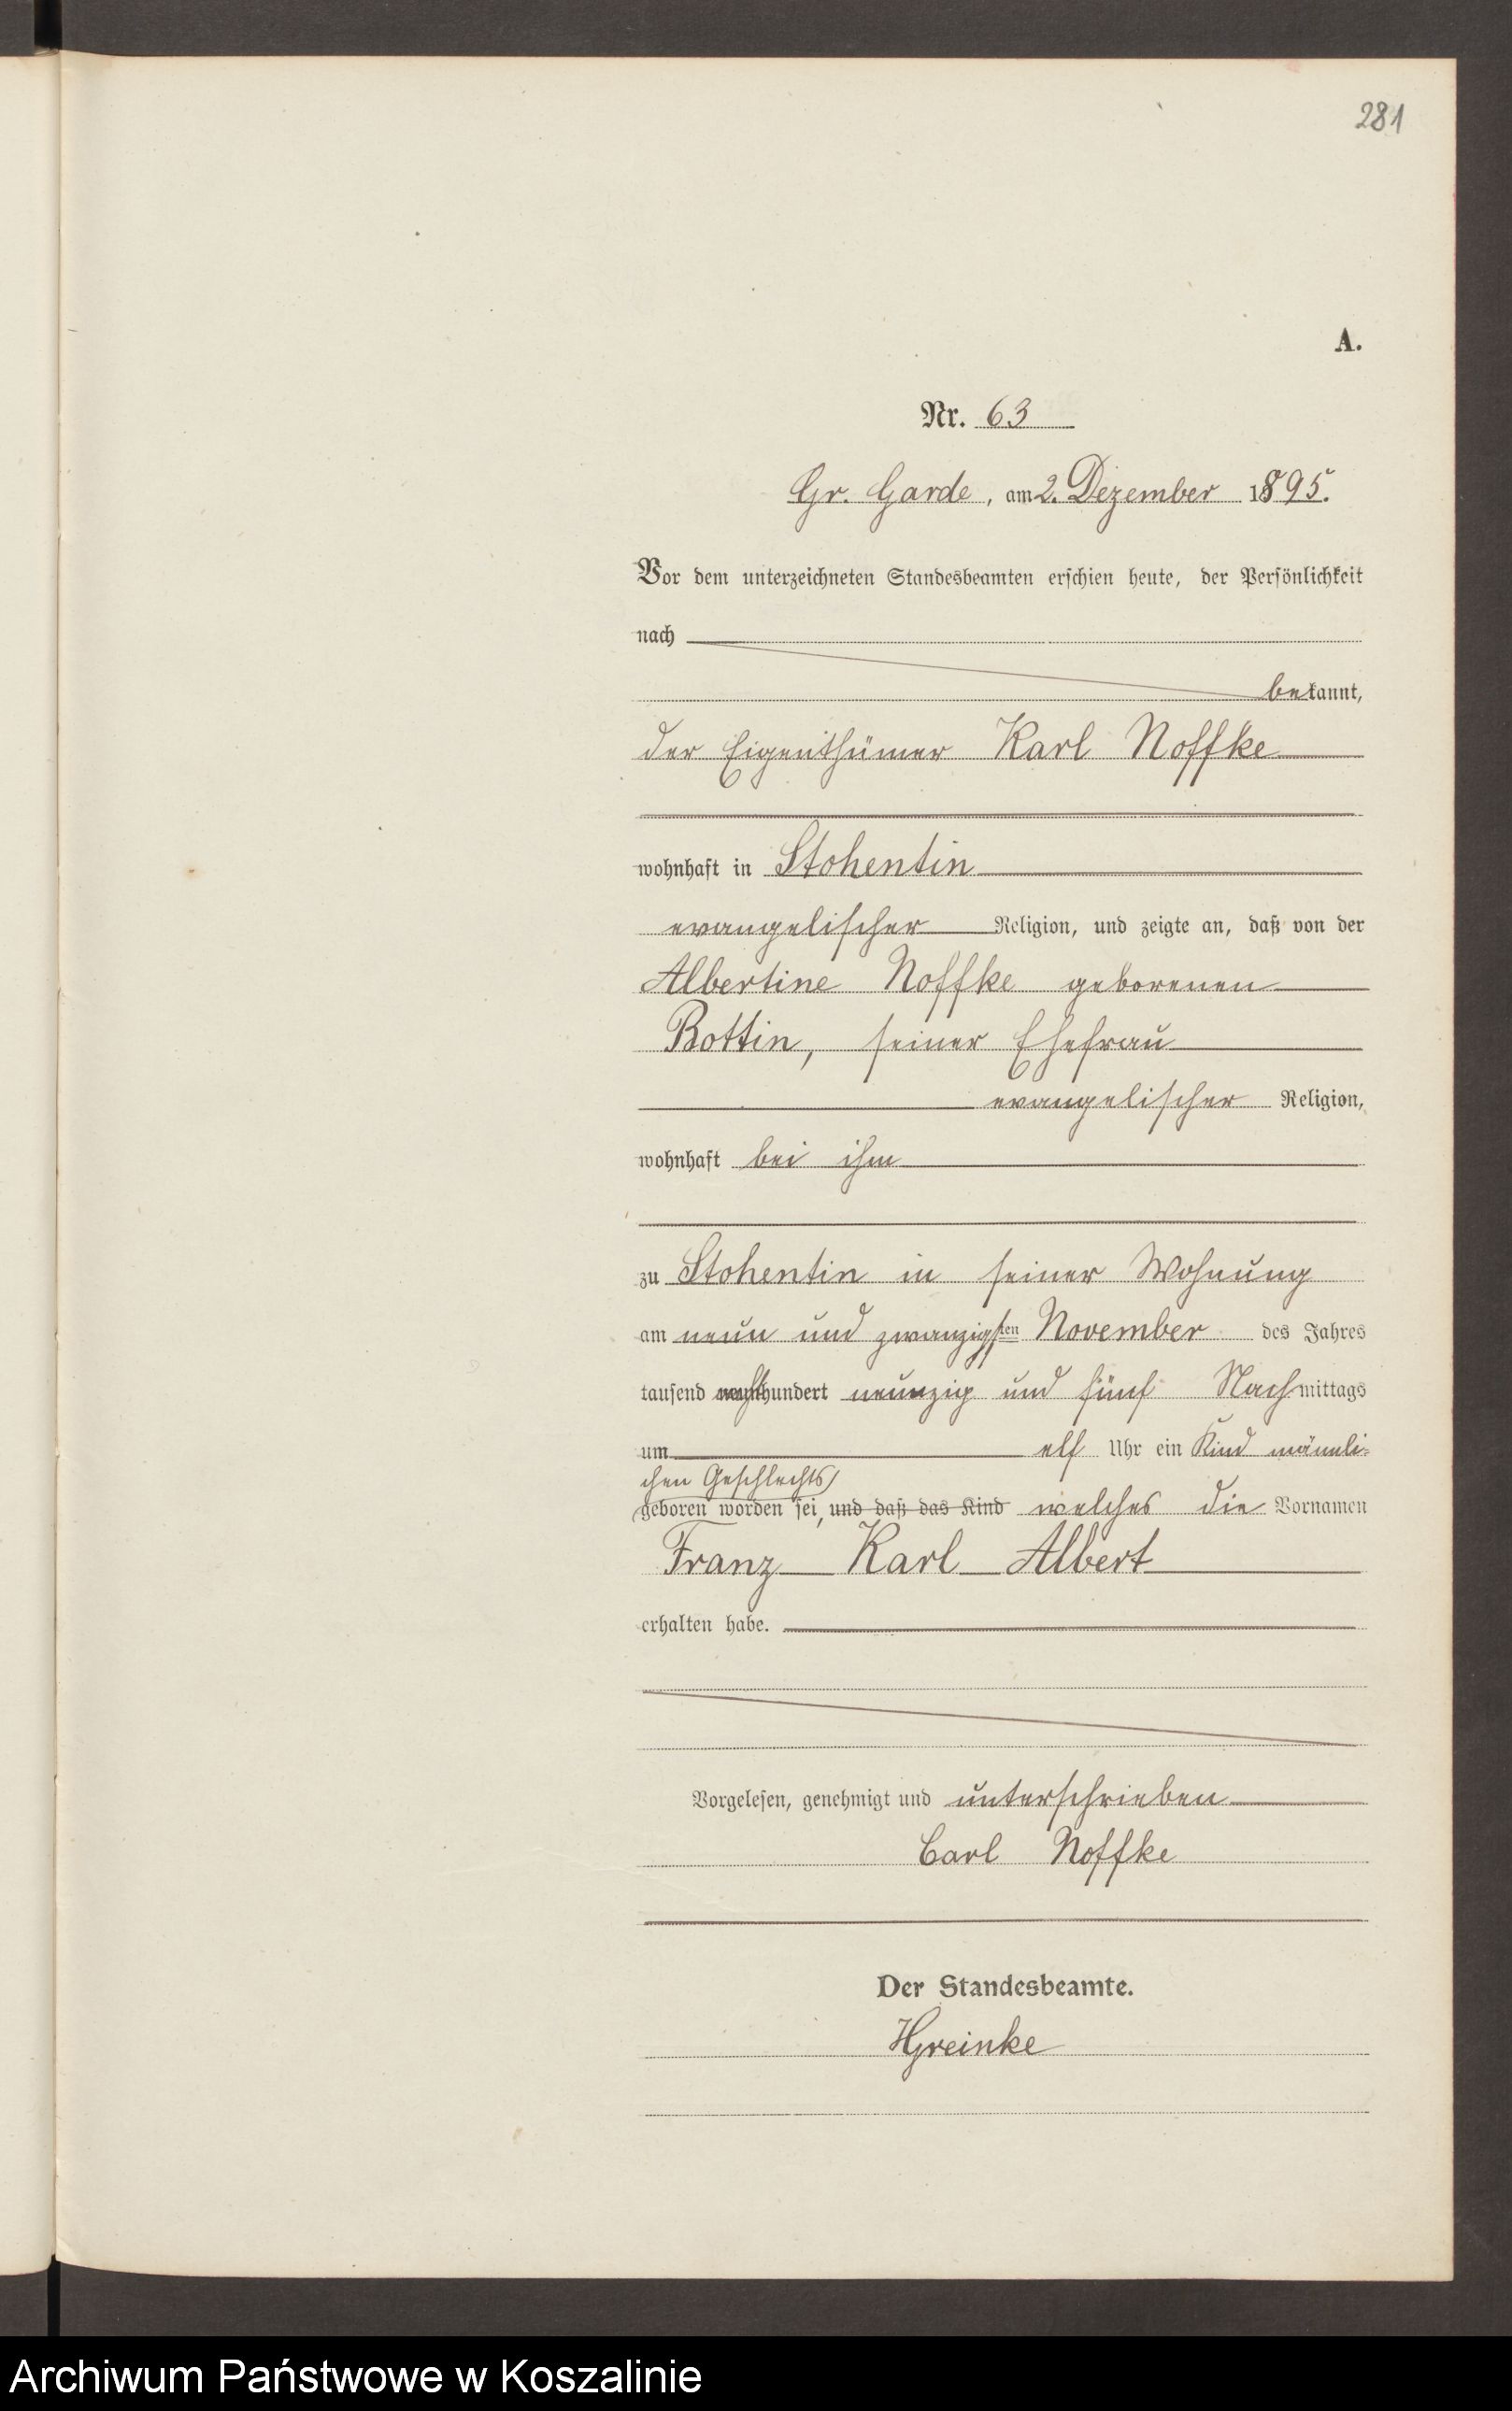 281
A.
Nr. 63
Gr. Garde, am 2. Dezember 1895.
Vor dem unterzeichneten Standesbeamten erschien heute, der Persönlichkeit
nach
bekannt,
der Eigenthümer Karl Noffke
wohnhaft in Stohentin
evangelischer Religion, und zeigte an, daß von der
Albertine Noffke geborenen
Rottin, seiner Ehefrau
evangelischer Religion,
wohnhaft bei ihm
zu Stohentin in seiner Wohnung
am neun und zwanzigsten November des Jahres
tausend achthundert neunzig und fünf Nachmittags
um elf Uhr ein Kind männli=
chen Geschlechts
geboren worden sei, und daß das Kind welches die Vornamen
Franz Karl Albert
erhalten habe.
Vorgelesen, genehmigt und unterschrieben
Carl Noffke
Der Standesbeamte.
Greinke
Archiwum Państwowe w Koszalinie